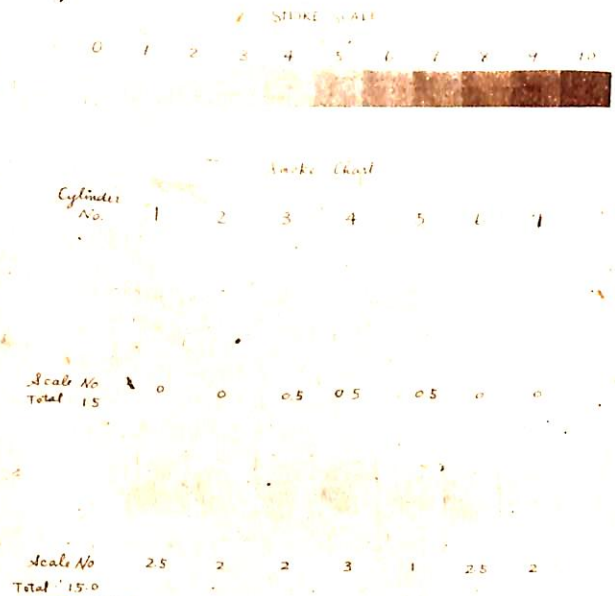 SMOKE SCALE
0 1 2 3 4 5 6 7 8 9 10
Smoke Chart
Cylinder
No. 1 2 3 4 5 6 7
Scale No 0 0 0.5 0 5 0 5 0 0
Total 1 5
Scale No 2.5 2 2 3 1 2 5 2
Total 15.0